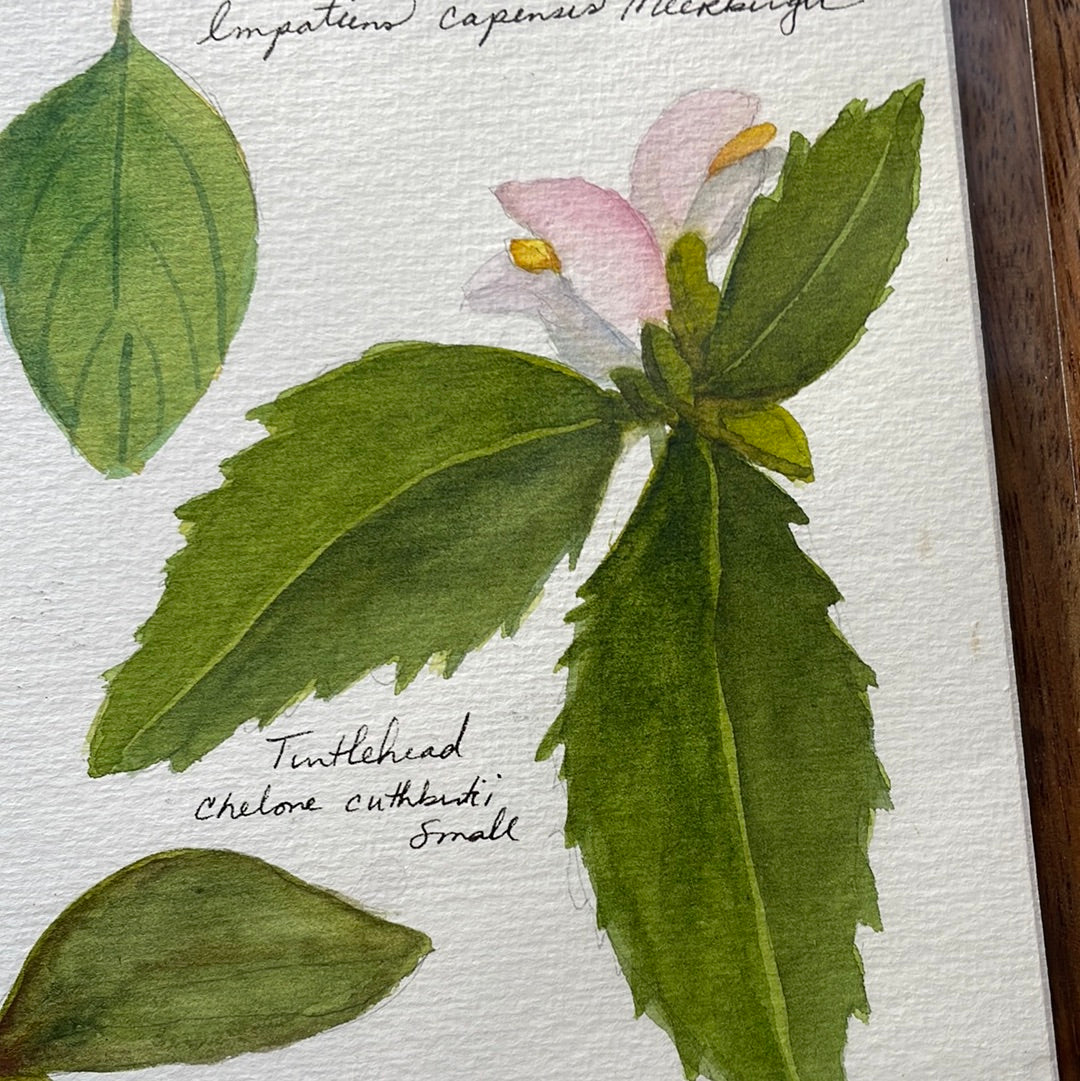 Impatiens capensis Meerburgh
Turtlehead
Chelone cuthbertii
Small